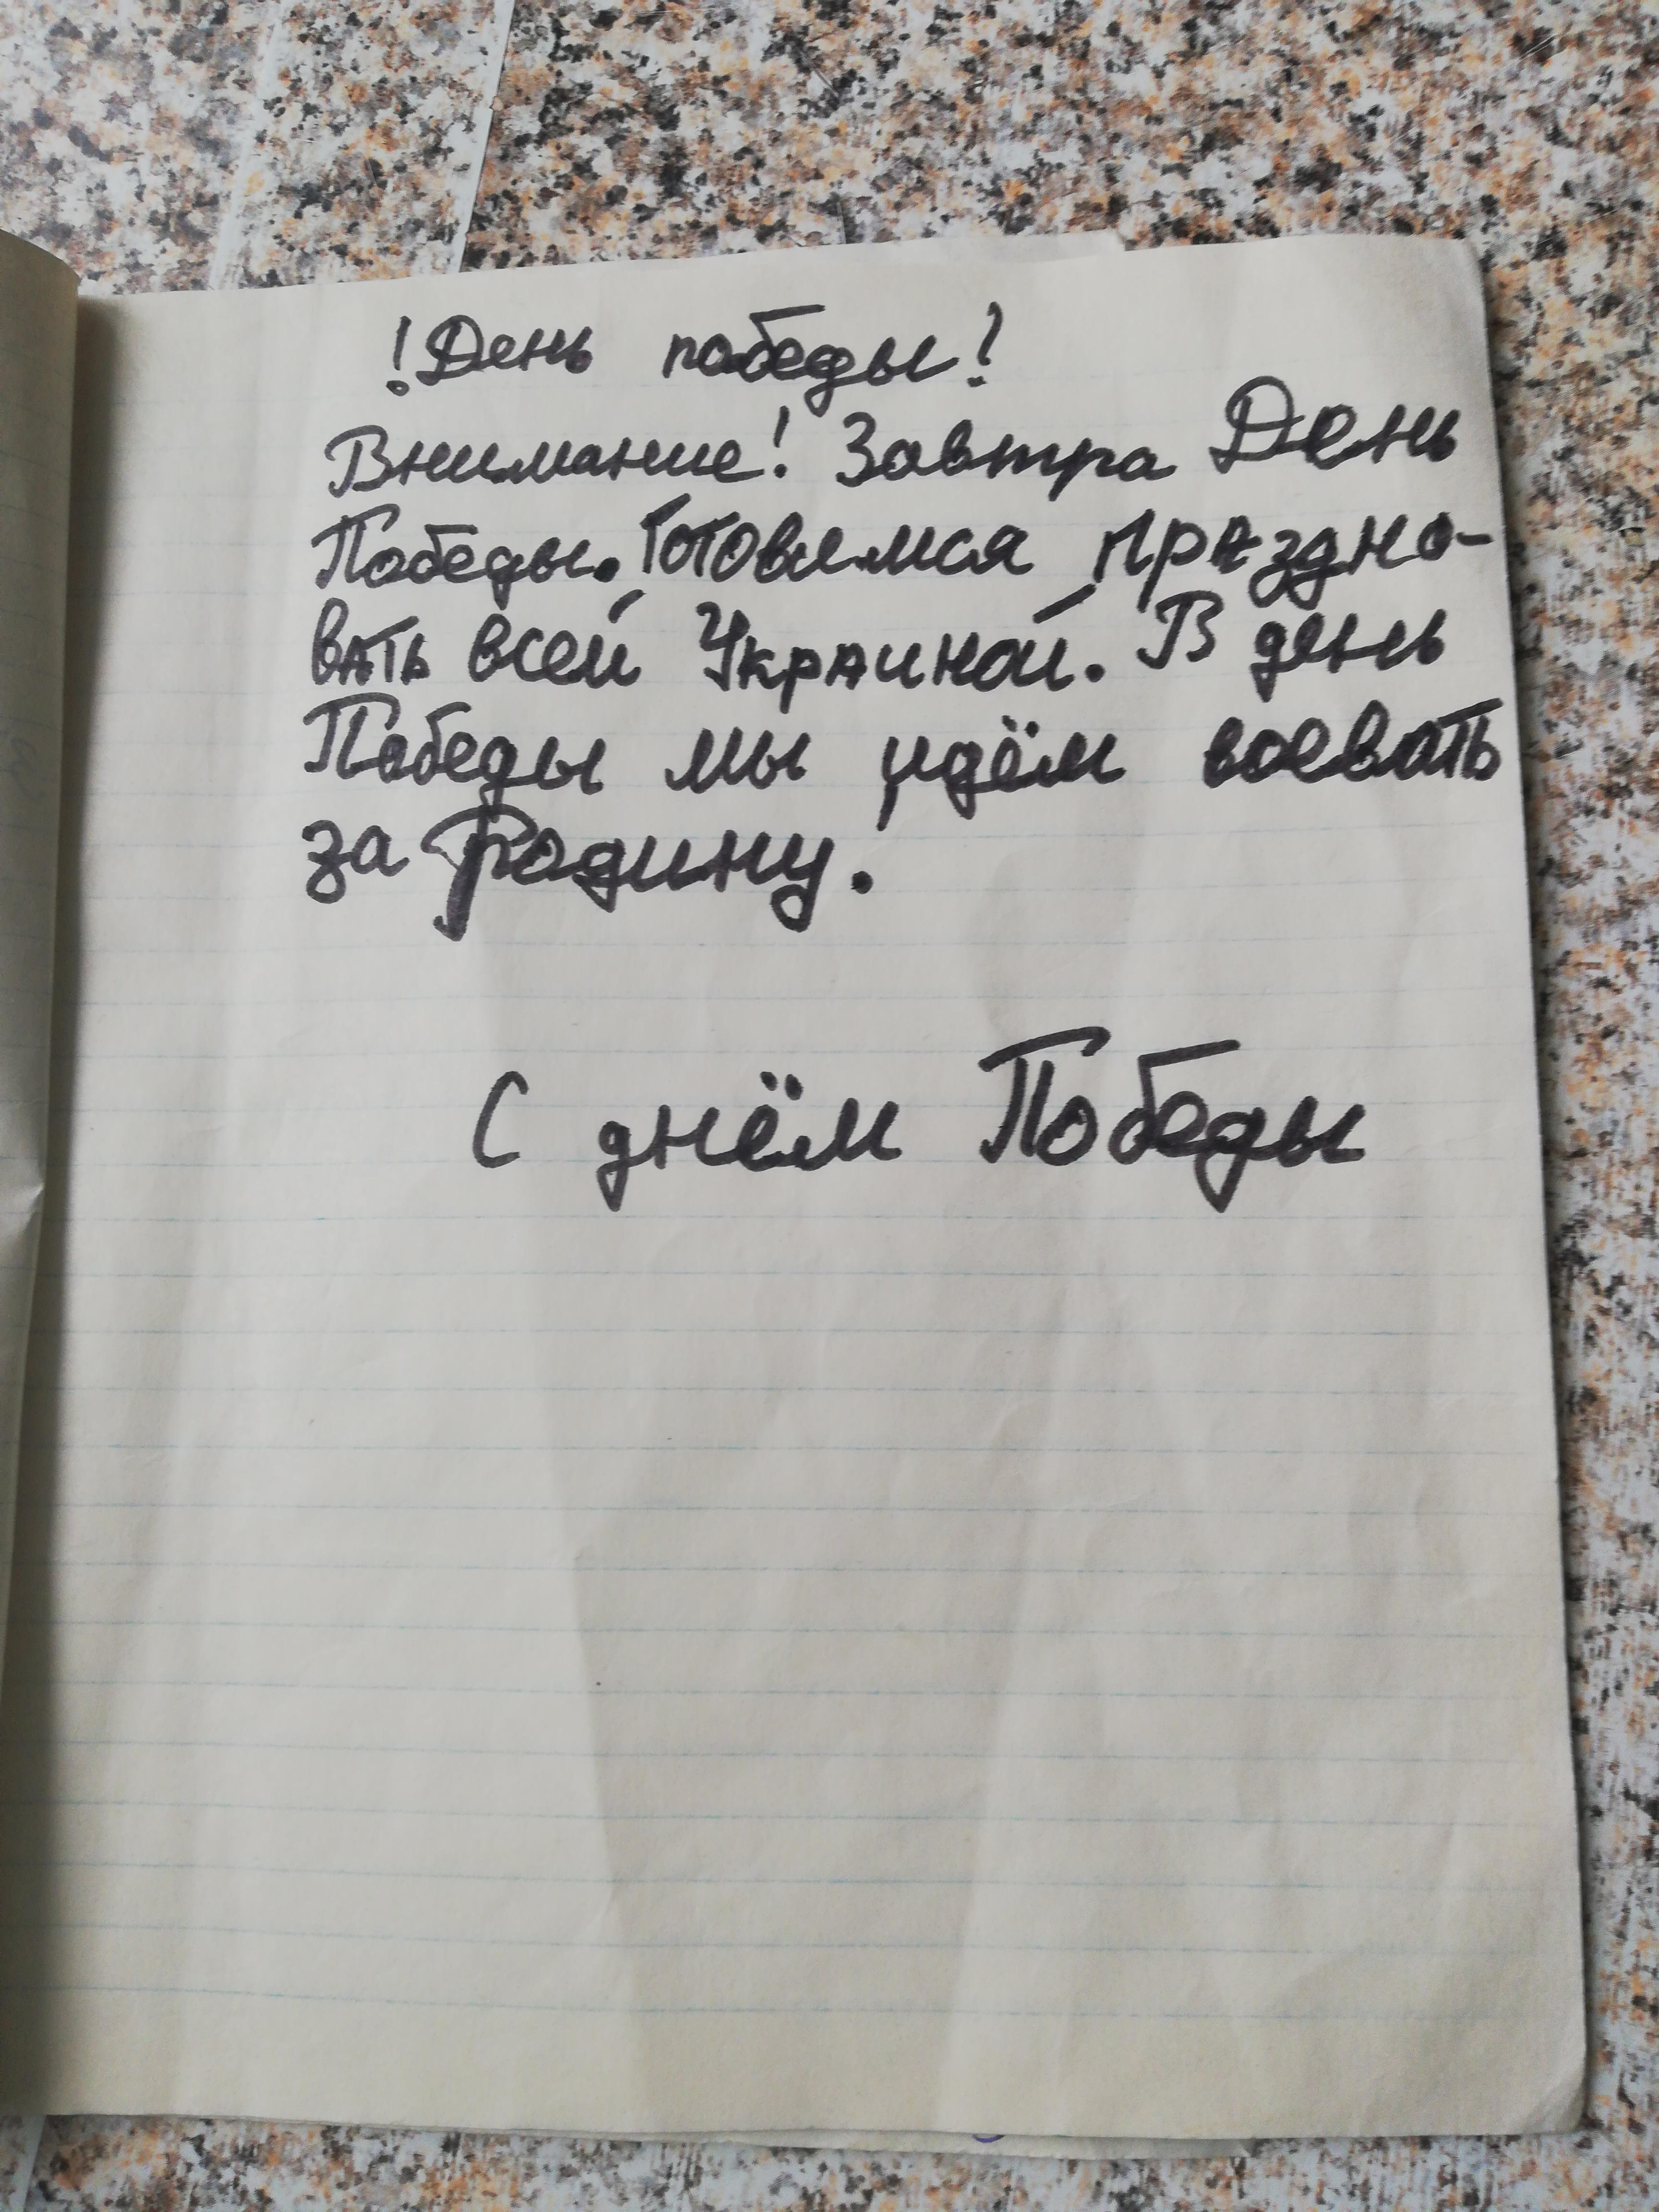 !День победы!
Внимание! Завтра День
Победы. Готовимся праздно-
вать всей Украиной. В день
Победы мы идём воевать
за Родину!
С днём Победы